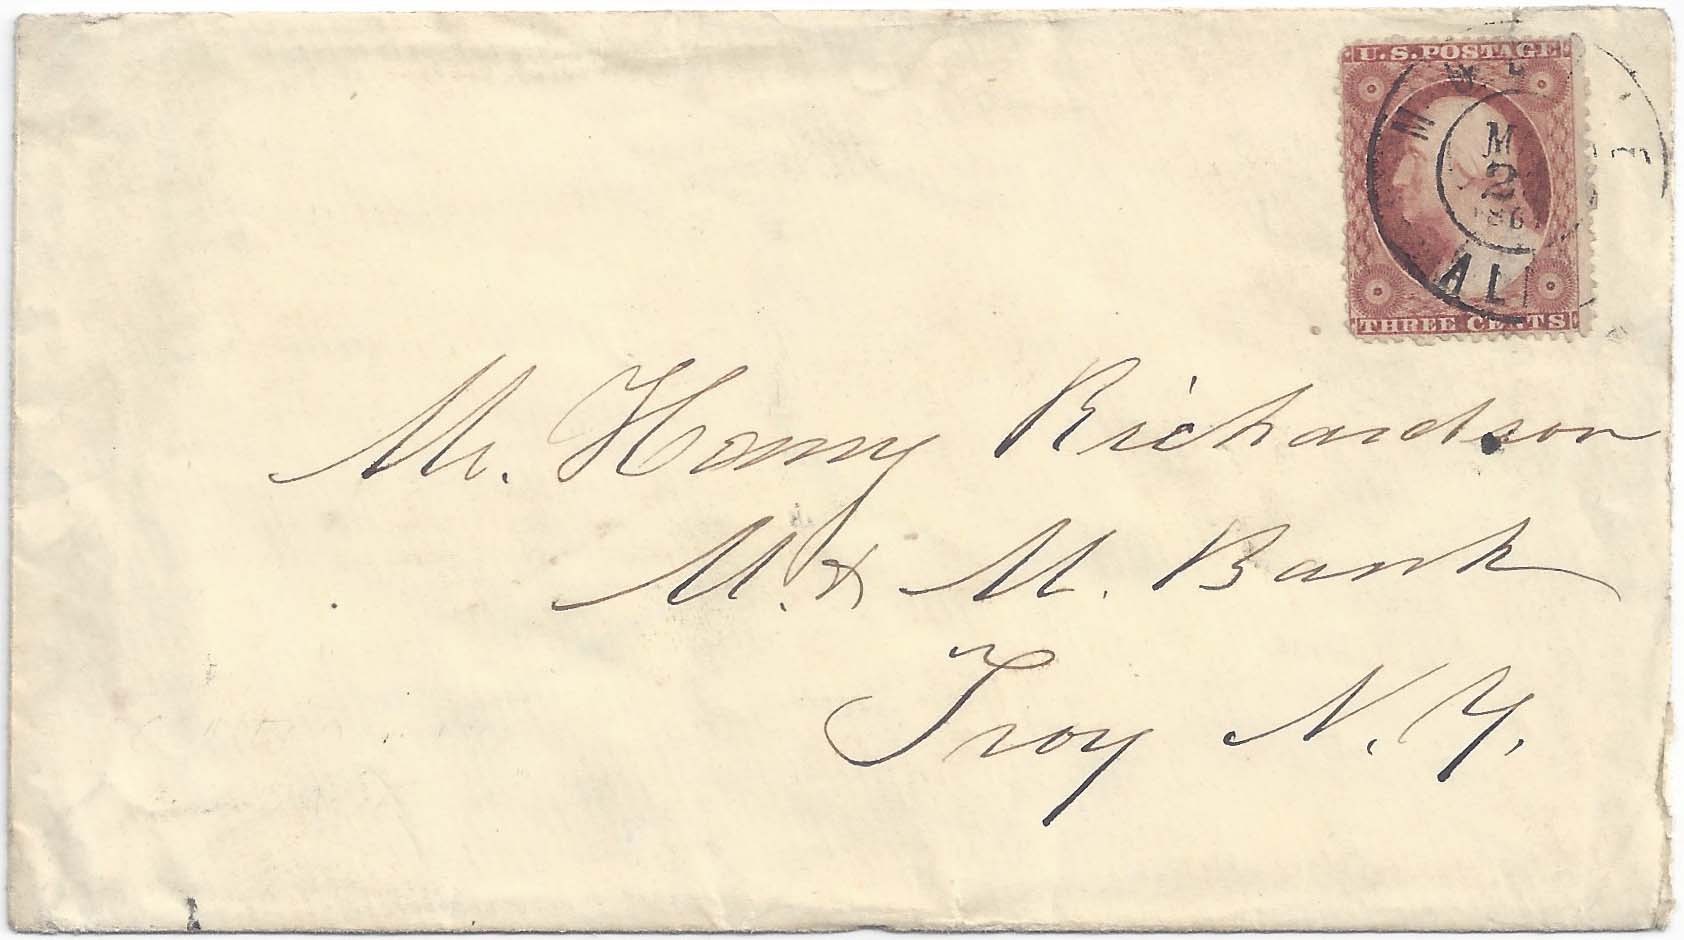 U.S. POSTAGE
MOBILE
M
2
186
AL
THREE CENTS
Mr. Henry Richardson
M. & M. Bank
Troy N.Y.